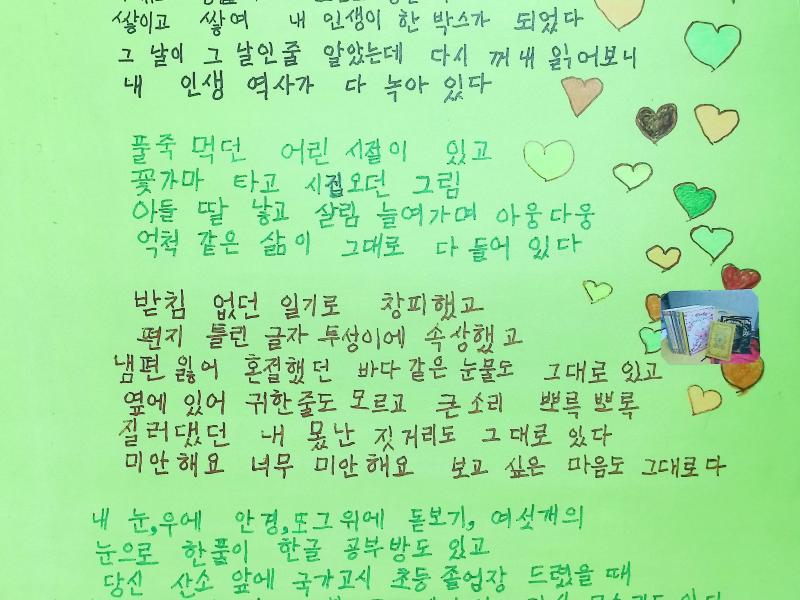 쌓이고 쌓여 내 인생이 한 박스가 되었다
그 날이 그 날인줄 알았는데 다시 꺼내 읽어보니
내 인생 역사가 다 녹아 있다
풀죽 먹던 어린 시절이 있고
꽃가마 타고 시집오던 그림
아들 딸 낳고 살림 늘여가며 아웅다웅
억척 같은 삶이 그대로 다 들어 있다
받침 없던 일기로 창피했고
편지 틀린 글자 투성이에 속상했고
냄편 잃어 혼절했던 바다같은 눈물도 그대로 있고
옆에 있어 귀한줄도 모르고 큰소리 뽀륵뽀록
질러댔던 내 못난 짓거리도 그대로 있다
미안해요 너무 미안해요 보고 싶은 마음도 그대로다
내 눈,우에 안경,또그위에 돋보기, 여섯개의
눈으로 한풀이 한글 공부방도 있고
당신 산소 앞에 국가고시 초등졸업장 드렸을 때